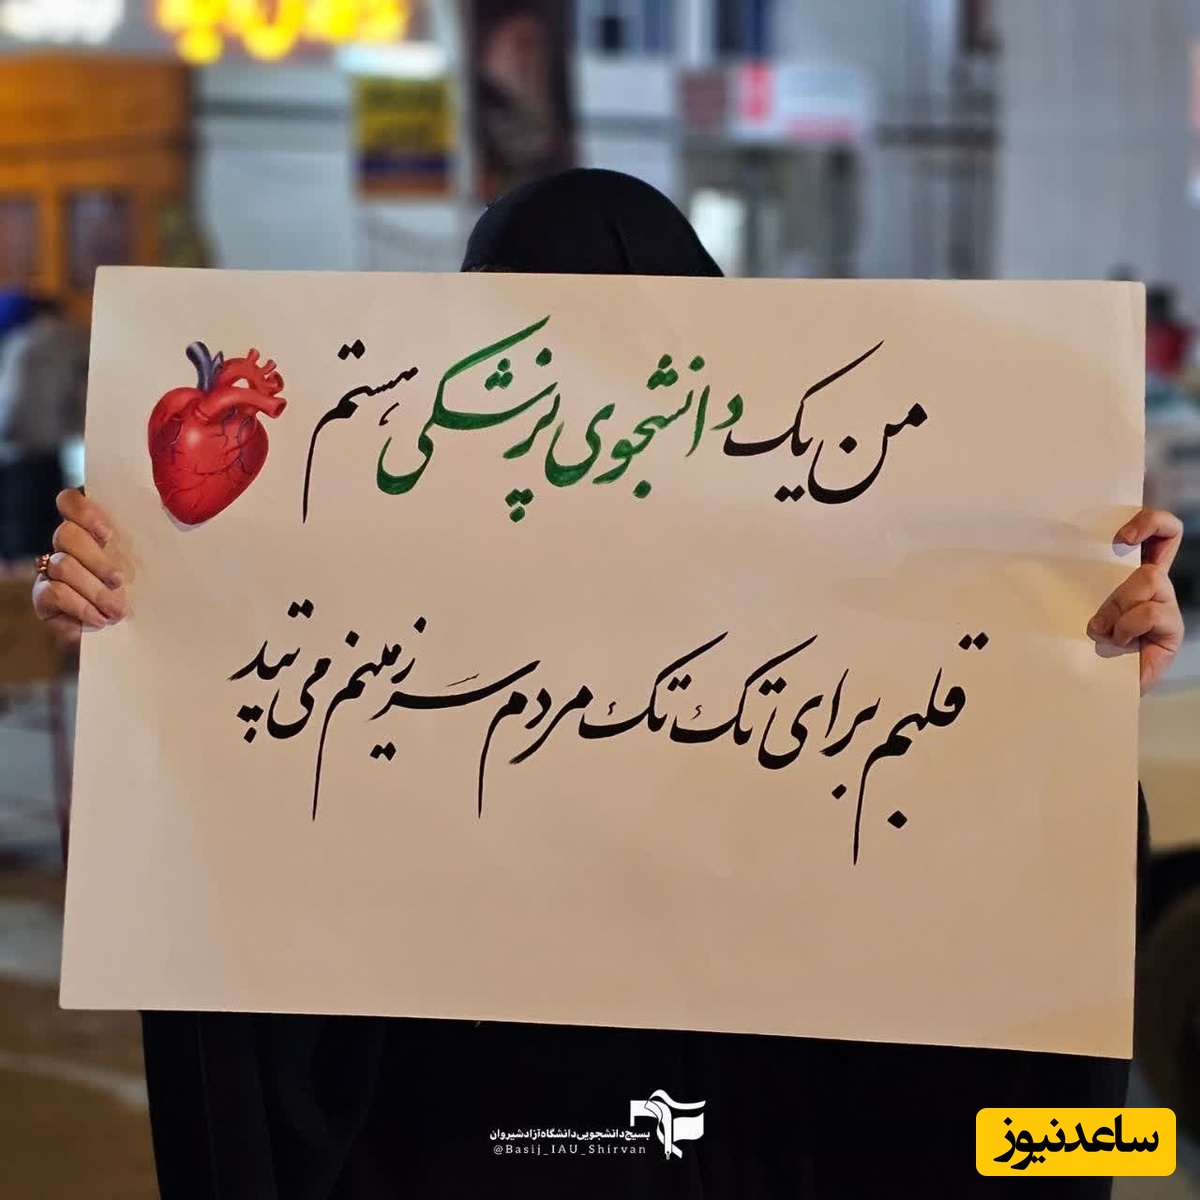 من یک دانشجوی پزشکی هستم
قلبم برای تک تک مردم سرزمینم می تپد
بسیج دانشجویی دانشگاه آزاد شیروان
@Basij_IAU_Shirvan
ساعدنیوز